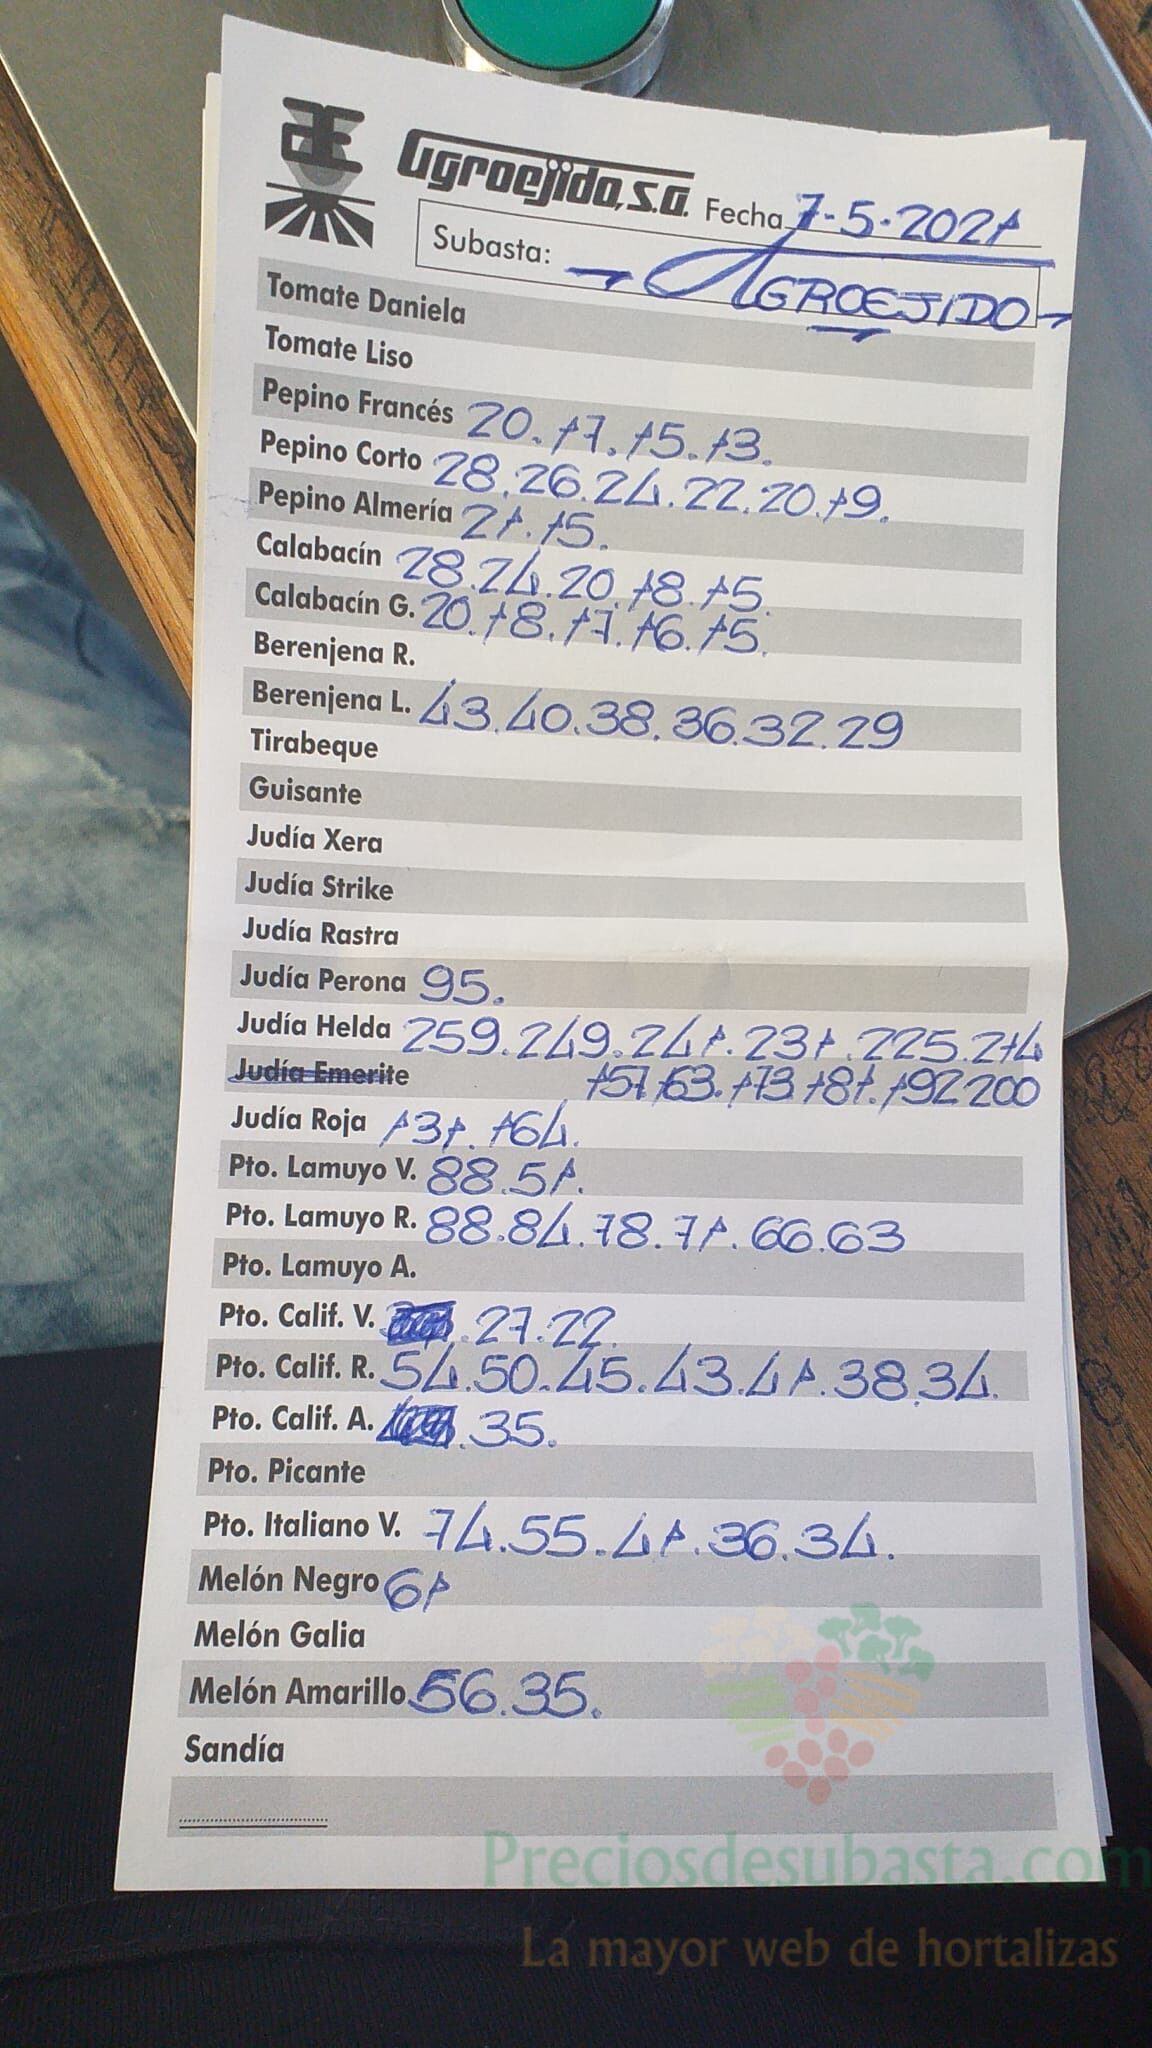 Agroejido, S.A. Fecha 7-5-2021
Subasta: → AGROEJIDO-
Tomate Daniela
Tomate Liso
Pepino Francés 20. 17. 15. 13.
Pepino Corto 28. 26. 24. 22. 20. 19.
Pepino Almería 21. 15.
Calabacín 28. 24. 20. 18. 15.
Calabacín G. 20. 18. 17. 16. 15.
Berenjena R.
Berenjena L. 43. 40. 38. 36. 32. 29
Tirabeque
Guisante
Judía Xera
Judía Strike
Judía Rastra
Judía Perona 95.
Judía Helda 259. 249. 241. 231. 225. 214
Judía Emerite 157. 163. 173. 181. 192. 200
Judía Roja 131. 164.
Pto. Lamuyo V. 88. 51.
Pto. Lamuyo R. 88. 84. 78. 71. 66. 63
Pto. Lamuyo A.
Pto. Calif. V. . 27. 22.
Pto. Calif. R. 54. 50. 45. 43. 41. 38. 34.
Pto. Calif. A. . 35.
Pto. Picante
Pto. Italiano V. 74. 55. 41. 36. 34.
Melón Negro 61
Melón Galia
Melón Amarillo 56. 35.
Sandía
Preciosdesubasta.com
La mayor web de hortalizas